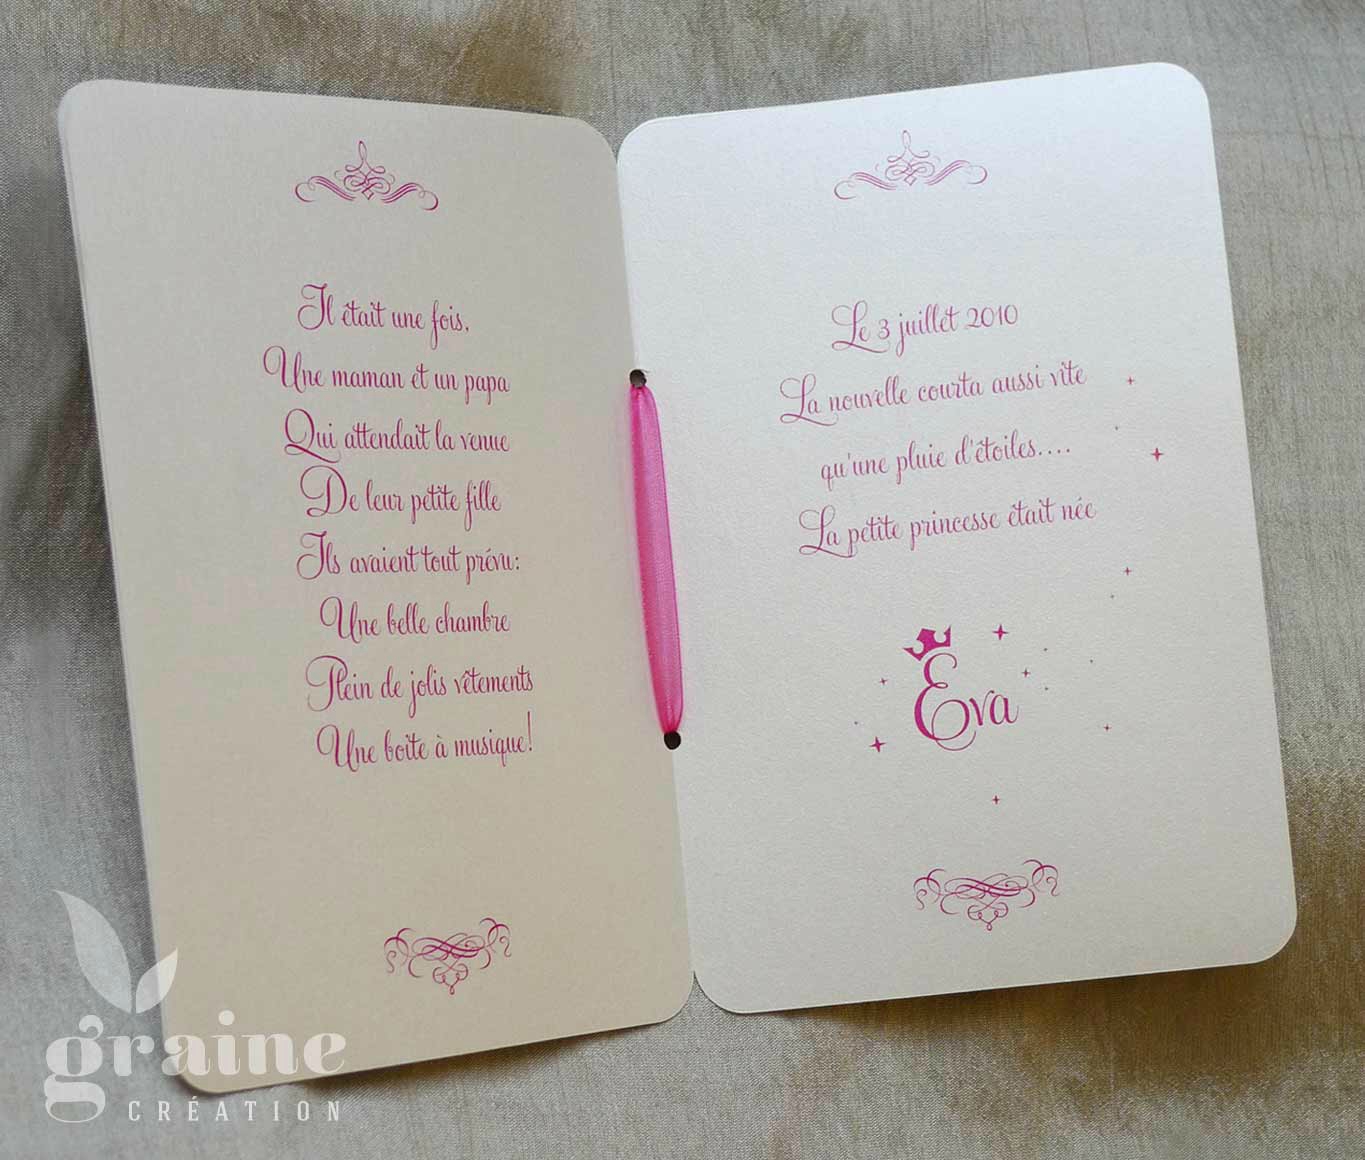 Il était une fois,
Une maman et un papa
Qui attendait la venue
De leur petite fille
Ils avaient tout prévu:
Une belle chambre
Plein de jolis vêtements
Une boîte à musique!
Le 3 juillet 2010
La nouvelle courta aussi vite
qu'une pluie d'étoiles....
La petite princesse était née
Eva
graine
CRÉATION